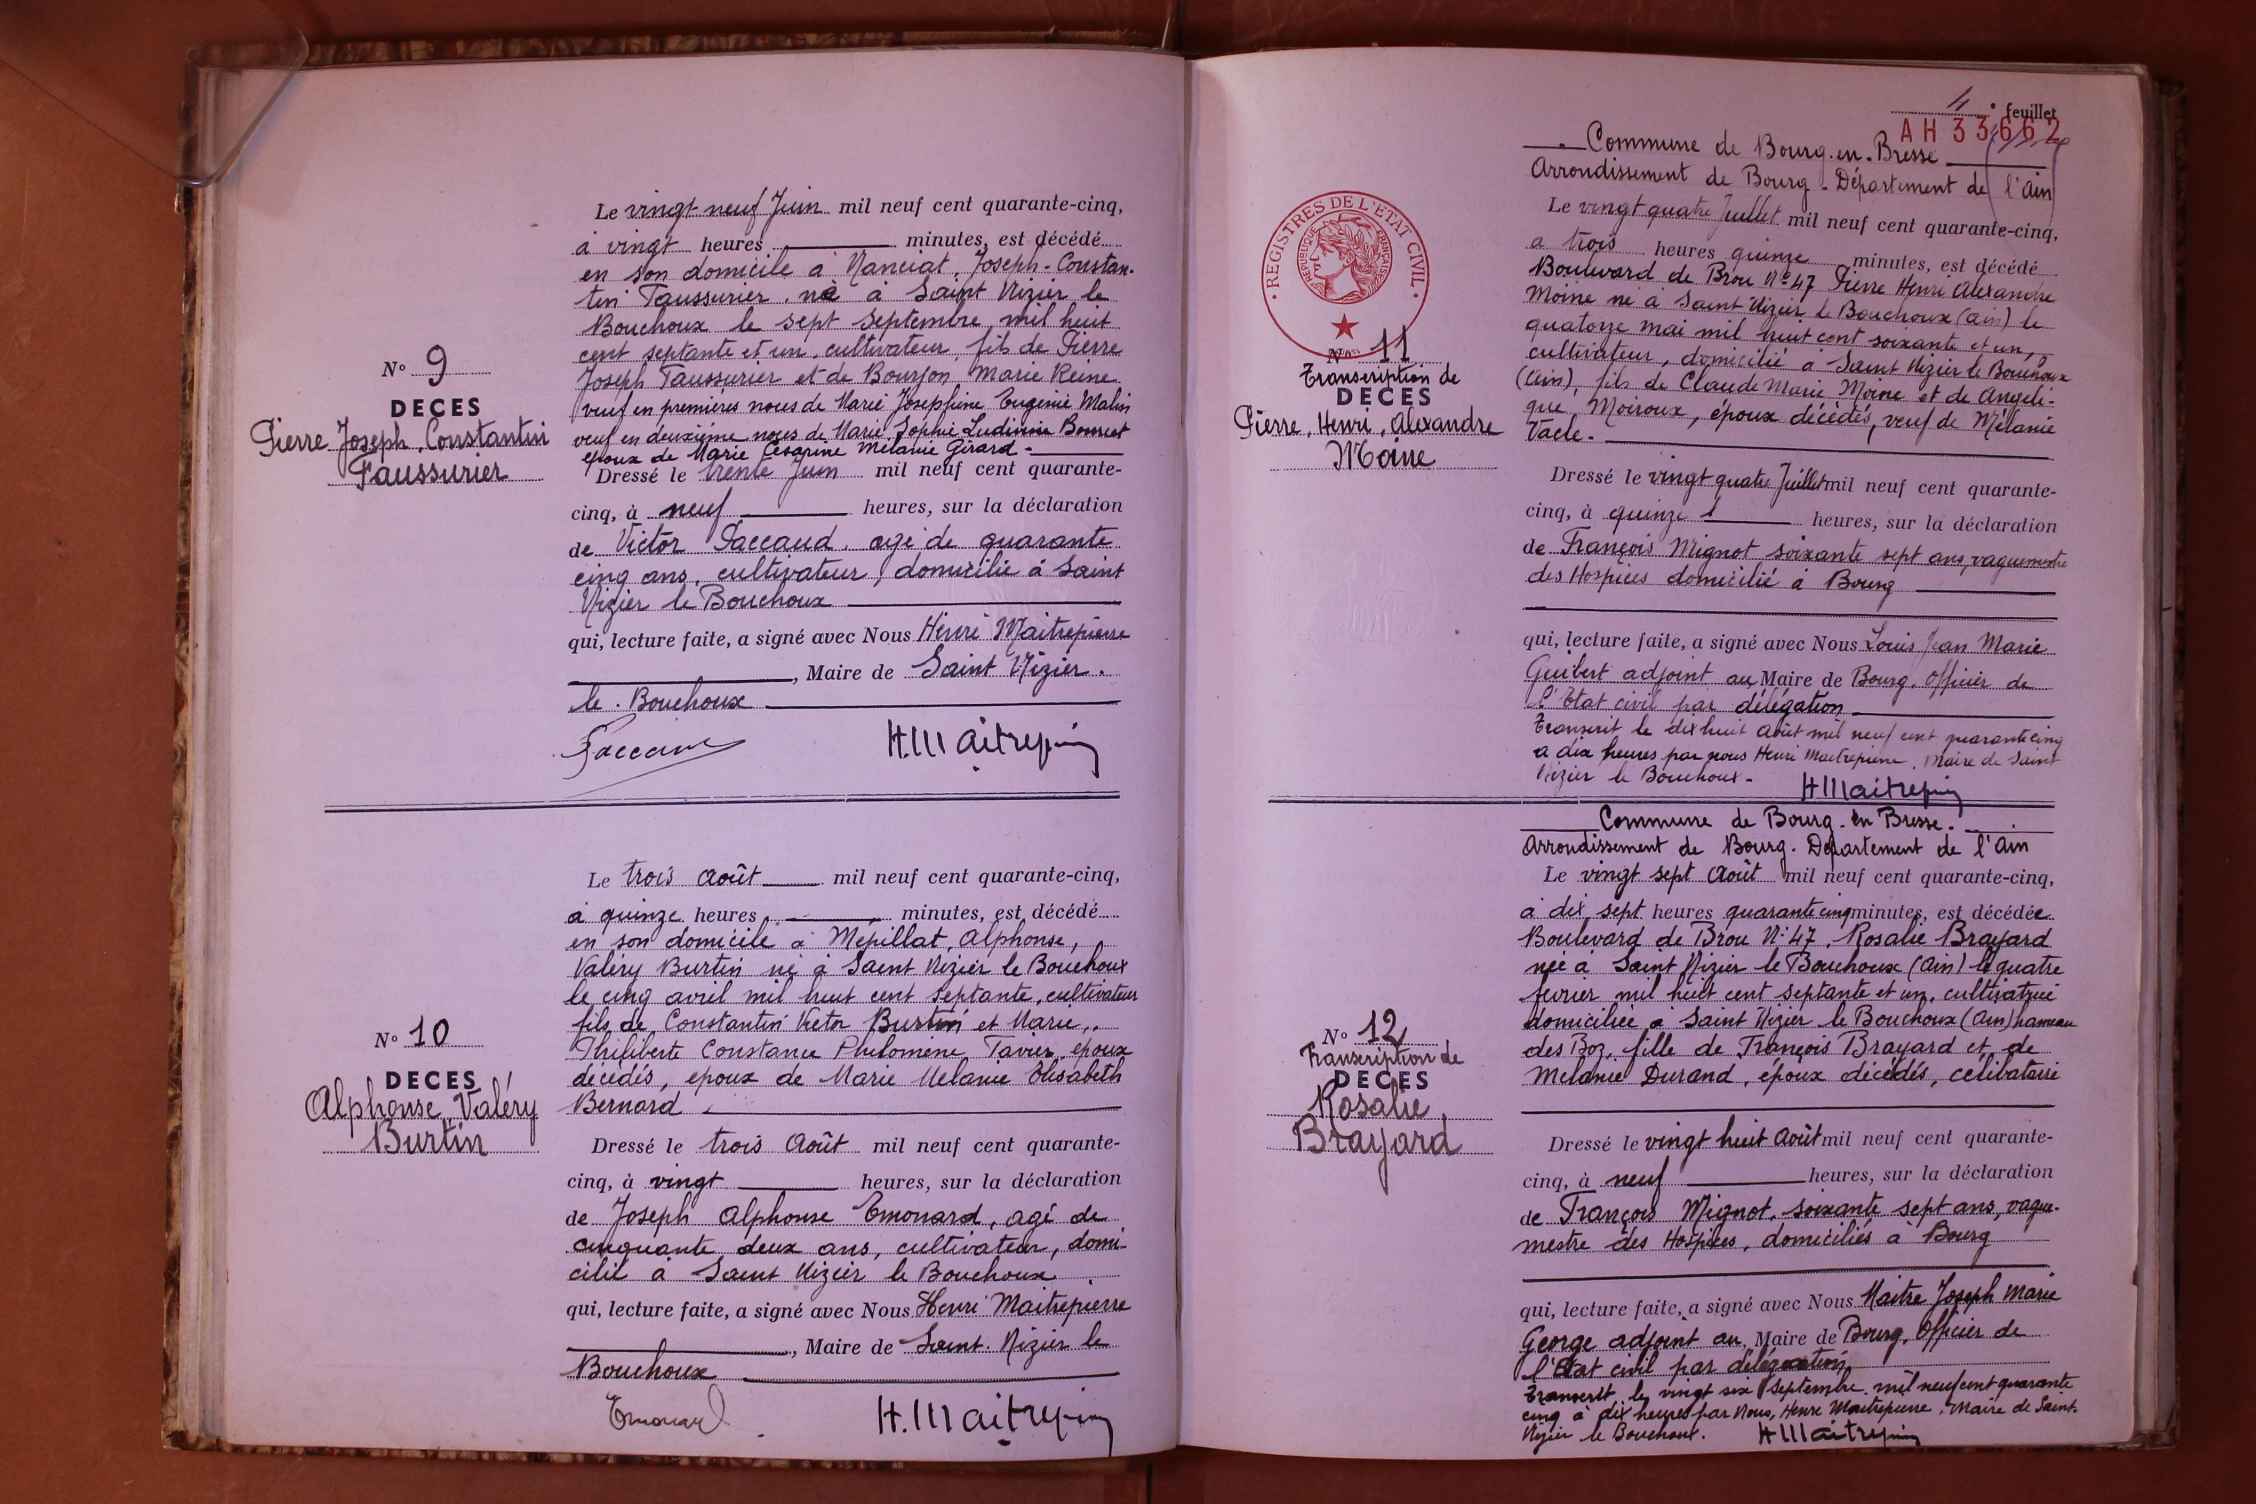 Le vingt neuf Juin mil neuf cent quarante-cinq,
à vingt heures minutes, est décédé
en son domicile à Nanciat, Joseph-Constan-
tin Faussurier, né à Saint Nizier le
Bouchoux le sept Septembre mil huit
cent septante et un, cultivateur, fils de Pierre
Joseph Faussurier et de Bourjon Marie Reine
veuf en premières noces de Marie Joséphine Eugénie Malin
veuf en deuxième noces de Marie Sophie Ludivine Bourcet
époux de Marie Césarine Mélanie Girard -
Nº 9
DÉCÈS
Pierre Joseph, Constantin
Faussurier
Dressé le trente Juin mil neuf cent quarante-
cinq, à neuf heures, sur la déclaration
de Victor Paccaud, agé de quarante
cinq ans, cultivateur, domicilié à Saint
Nizier le Bouchoux
qui, lecture faite, a signé avec Nous Henri Maitrepierre
, Maire de Saint Nizier.
le Bouchoux
Paccaud H. Maitrepierre
Le trois Août mil neuf cent quarante-cinq,
à quinze heures minutes, est décédé
en son domicile à Mépillat, Alphonse,
Valéry Burtin né à Saint Nizier le Bouchoux
le cinq avril mil huit cent septante, cultivateur
fils de Constantin Victor Burtin et Marie,
Philiberte Constance Philomène Tavier, époux
décédés, époux de Marie Mélanie Elisabeth
Bernard
Nº 10
DÉCÈS
Alphonse, Valéry
Burtin
Dressé le trois Août mil neuf cent quarante-
cinq, à vingt heures, sur la déclaration
de Joseph Alphonse Emonard, agé de
cinquante deux ans, cultivateur, domi-
cilié à Saint Nizier le Bouchoux
qui, lecture faite, a signé avec Nous Henri Maitrepierre
, Maire de Saint-Nizier le
Bouchoux
Emonard H. Maitrepierre
4e feuillet
AH 33662
Commune de Bourg-en-Bresse
Arrondissement de Bourg - Département de l'Ain
REGISTRES DE L'ÉTAT CIVIL
RÉPUBLIQUE FRANÇAISE
Le vingt quatre Juillet mil neuf cent quarante-cinq,
à trois heures quinze minutes, est décédé
Boulevard de Brou Nº 47 Pierre Henri Alexandre
Moine né à Saint Nizier le Bouchoux (Ain) le
quatorze mai mil huit cent soixante et un,
cultivateur, domicilié à Saint Nizier le Bouchoux
(Ain), fils de Claude Marie Moine et de Angéli-
que Moiroux, époux décédés, veuf de Mélanie
Vacle.
Nº 11
Transcription de
DÉCÈS
Pierre, Henri, Alexandre
Moine
Dressé le vingt quatre Juillet mil neuf cent quarante-
cinq, à quinze heures, sur la déclaration
de François Mignot soixante sept ans, vaguemestre
des Hospices domicilié à Bourg
qui, lecture faite, a signé avec Nous Louis Jean Marie
Guibert adjoint au Maire de Bourg, Officier de
l'Etat civil par délégation
Transcrit le dix huit Août mil neuf cent quarante cinq
à dix heures par nous Henri Maitrepierre, Maire de Saint
Nizier le Bouchoux - H Maitrepierre
Commune de Bourg-en Bresse.
Arrondissement de Bourg. Département de l'Ain
Le vingt sept Août mil neuf cent quarante-cinq,
à dix sept heures quarante cinq minutes, est décédée
Boulevard de Brou Nº 47, Rosalie Brayard
née à Saint Nizier le Bouchoux (Ain) le quatre
février mil huit cent septante et un, cultivatrice
domiciliée à Saint Nizier le Bouchoux (Ain) hameau
des Boz, fille de François Brayard et de
Mélanie Durand, époux décédés, célibataire
Nº 12
Transcription de
DÉCÈS
Rosalie
Brayard
Dressé le vingt huit Août mil neuf cent quarante-
cinq, à neuf heures, sur la déclaration
de François Mignot, soixante sept ans, vague-
mestre des Hospices, domiciliés à Bourg
qui, lecture faite, a signé avec Nous Maitre Joseph Marie
George adjoint au Maire de Bourg, Officier de
l'Etat civil par délégation
Transcrit le vingt six Septembre mil neuf cent quarante
cinq à dix heures par Nous, Henri Maitrepierre, Maire de Saint-
Nizier le Bouchoux. H Maitrepierre